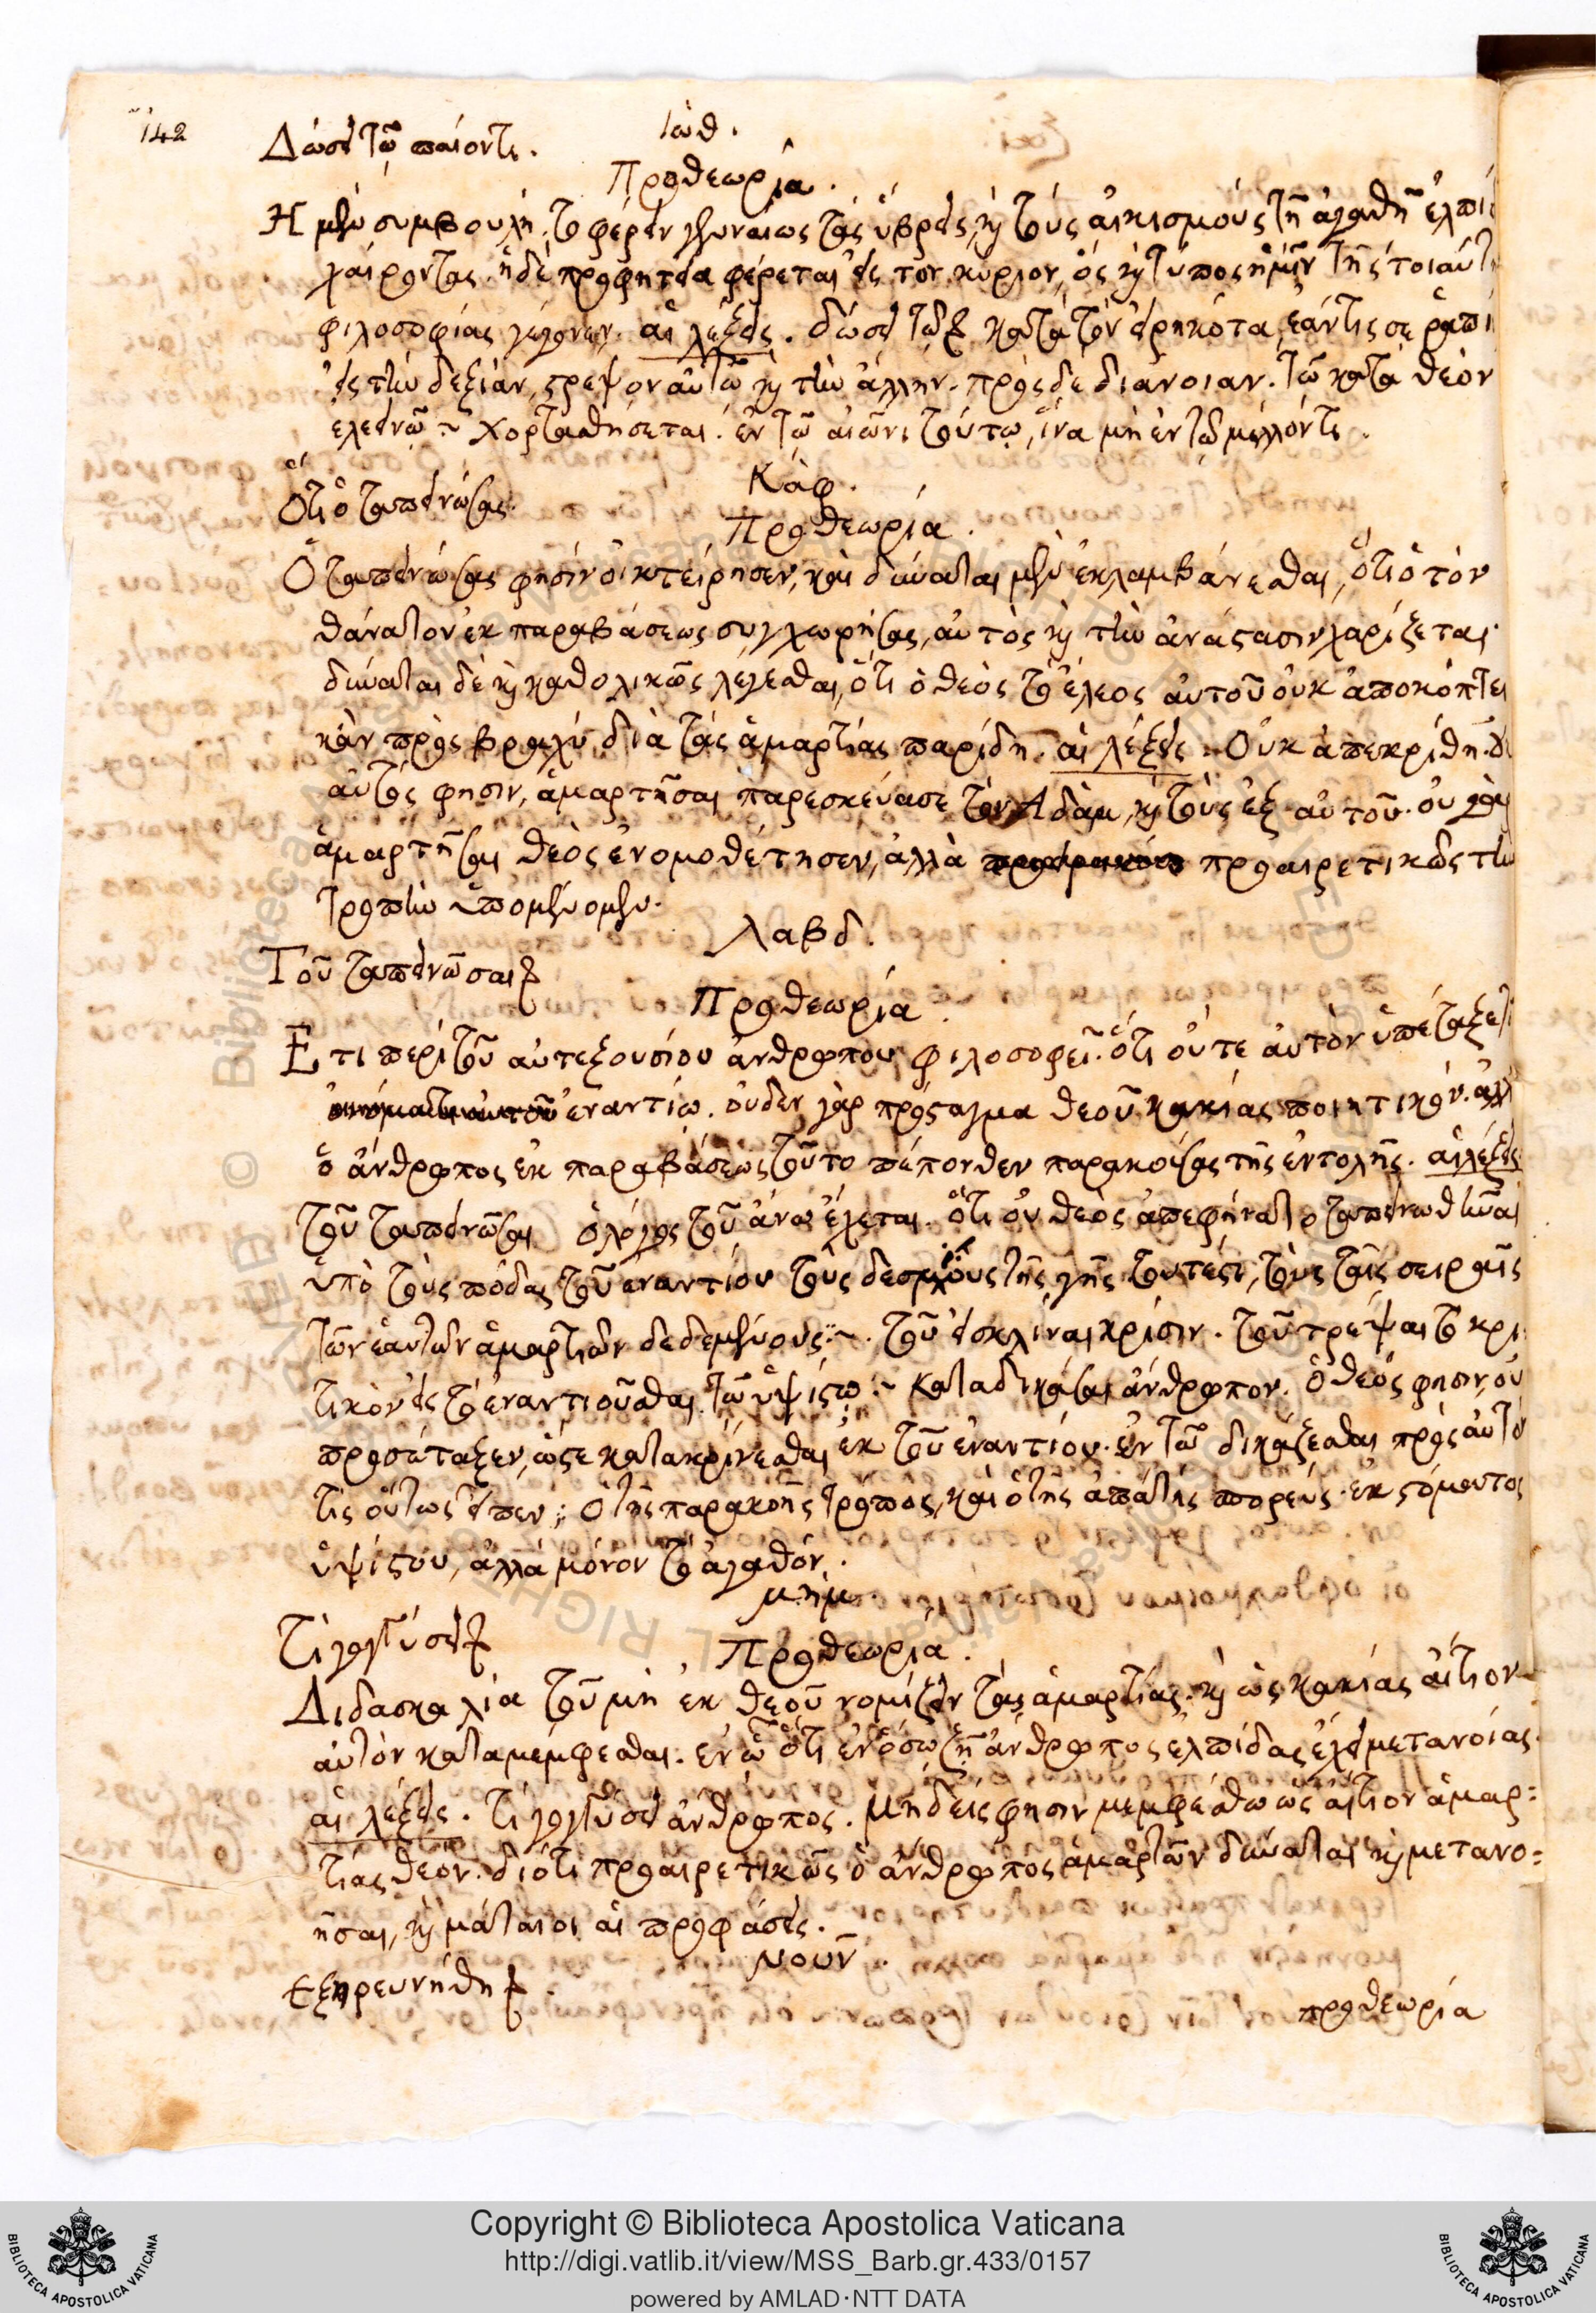 142
Ἰώθ.
Δώσει τῷ παίοντι.
Προθεωρία.
Ἡ μὲν συμβουλὴ, τὸ φέρειν γενναίως τὰς ὕβρεις, καὶ τοὺς αἰκισμοὺς τῇ ἀγαθῇ ἐλπί
χαίροντας. ἡ δὲ προφητεία φέρεται εἰς τὸν κύριον, ὃς καὶ τύπος ἡμῖν τῆς τοιαύτη
φιλοσοφίας γέγονεν. αἱ λέξεις. δώσει τῷ κατὰ τὸν εἰρηκότα, ἐάν τις σε ῥαπί
εἰς τὴν δεξιὰν, στρέψον αὐτῷ καὶ τὴν ἄλλην. πρὸς δὲ διάνοιαν. τῷ κατὰ θεὸν
ἐλεεινῷ ~ χορτασθήσεται. ἐν τῷ αἰῶνι τούτῳ, ἵνα μὴ ἐν τῷ μέλλοντι.
Κάφ.
Ὅτι ὁ ταπεινώσας.
Προθεωρία.
Ὁ ταπεινώσας φησὶν οἰκτείρησεν, καὶ δύναται μὲν ἐκλαμβάνεσθαι, ὅτι ὁ τὸν
θάνατον ἐκ παραβάσεως συγχωρήσας, αὐτὸς καὶ τὴν ἀνάστασιν χαρίζεται.
δύναται δὲ καὶ καθολικῶς λέγεσθαι, ὅτι ὁ θεὸς τὸ ἔλεος αὐτοῦ οὐκ ἀποκόπτει
κἂν πρὸς βραχὺ διὰ τὰς ἁμαρτίας παρίδῃ. αἱ λέξεις. Οὐκ ἀπεκρίθη.
αὐτός φησιν, ἁμαρτῆσαι παρεσκεύασε τὸν Ἀδὰμ, καὶ τοὺς ἐξ αὐτοῦ. οὐ γὰρ
ἁμαρτῆσαι θεὸς ἐνομοθέτησεν, ἀλλὰ προαιρετικῶς τὴν
τροπὴν ὑπομένομεν.
Λαβδ.
Τοῦ ταπεινῶσαι
Προθεωρία.
Ἔτι περὶ τοῦ αὐτεξουσίου ἀνθρώπου φιλοσοφεῖ. ὅτι οὔτε αὐτὸν ὑπέταξε τῷ
ἐναντίῳ. οὐδὲν γὰρ πρόσταγμα θεοῦ κακίας ποιητικόν. ἀλλ
ὁ ἄνθρωπος ἐκ παραβάσεως τοῦτο πέπονθεν παρακούσας τῆς ἐντολῆς. αἱ λέξεις
τοῦ ταπεινῶσαι ὁ λόγος τοῦ ἄνω ἔχεται. ὅτι οὐ θεὸς ἀπεφήνατο ταπεινωθῆναι
ὑπὸ τοὺς πόδας τοῦ ἐναντίου τοὺς δεσμίους τῆς γῆς τουτέστι, τοὺς ταῖς σειραῖς
τῶν ἑαυτῶν ἁμαρτιῶν δεδεμένους ~. τοῦ ἐκκλῖναι κρίσιν. τοῦ τρέψαι τὸ κρι
τικὸν εἰς τὸ ἐναντιοῦσθαι τῷ ὑψίστῳ ~ καταδικάσαι ἄνθρωπον. ὁ θεός φησιν, οὐ
προσέταξεν, ὥστε κατακρίνεσθαι ἐκ τοῦ ἐναντίου. ἐν τῷ δικάζεσθαι πρὸς αὐτὸ
τίς οὕτως εἶπεν; ὁ τῆς παρακοῆς τρόπος, καὶ ὁ τῆς ἀπάτης πορεύς. ἐκ στόματος
ὑψίστου, ἀλλὰ μόνον τὸ ἀγαθόν.
μήμ.
Τί γογγύσει
Προθεωρία.
Διδασκαλία τοῦ μὴ ἐκ θεοῦ νομίζειν τὰς ἁμαρτίας, καὶ ὡς κακίας αἴτιον
αὐτὸν καταμέμφεσθαι. ἐν ᾧ ὅτι ἐν ὅσῳ ζῇ ἄνθρωπος ἐλπίδας ἔχει μετανοίας.
αἱ λέξεις. τί γογγύσει ἄνθρωπος. μηδείς φησιν μεμφέσθω ὡς αἴτιον ἁμαρ=
τίας θεόν. διότι προαιρετικῶς ὁ ἄνθρωπος ἁμαρτῶν δύναται καὶ μετανο=
ῆσαι, καὶ μάταιοι αἱ προφάσεις.
Νοῦν.
Ἐξηρευνήθη
προθεωρία
Copyright © Biblioteca Apostolica Vaticana
http://digi.vatlib.it/view/MSS_Barb.gr.433/0157
powered by AMLAD·NTT DATA
BIBLIOTECA APOSTOLICA VATICANA
BIBLIOTECA APOSTOLICA VATICANA